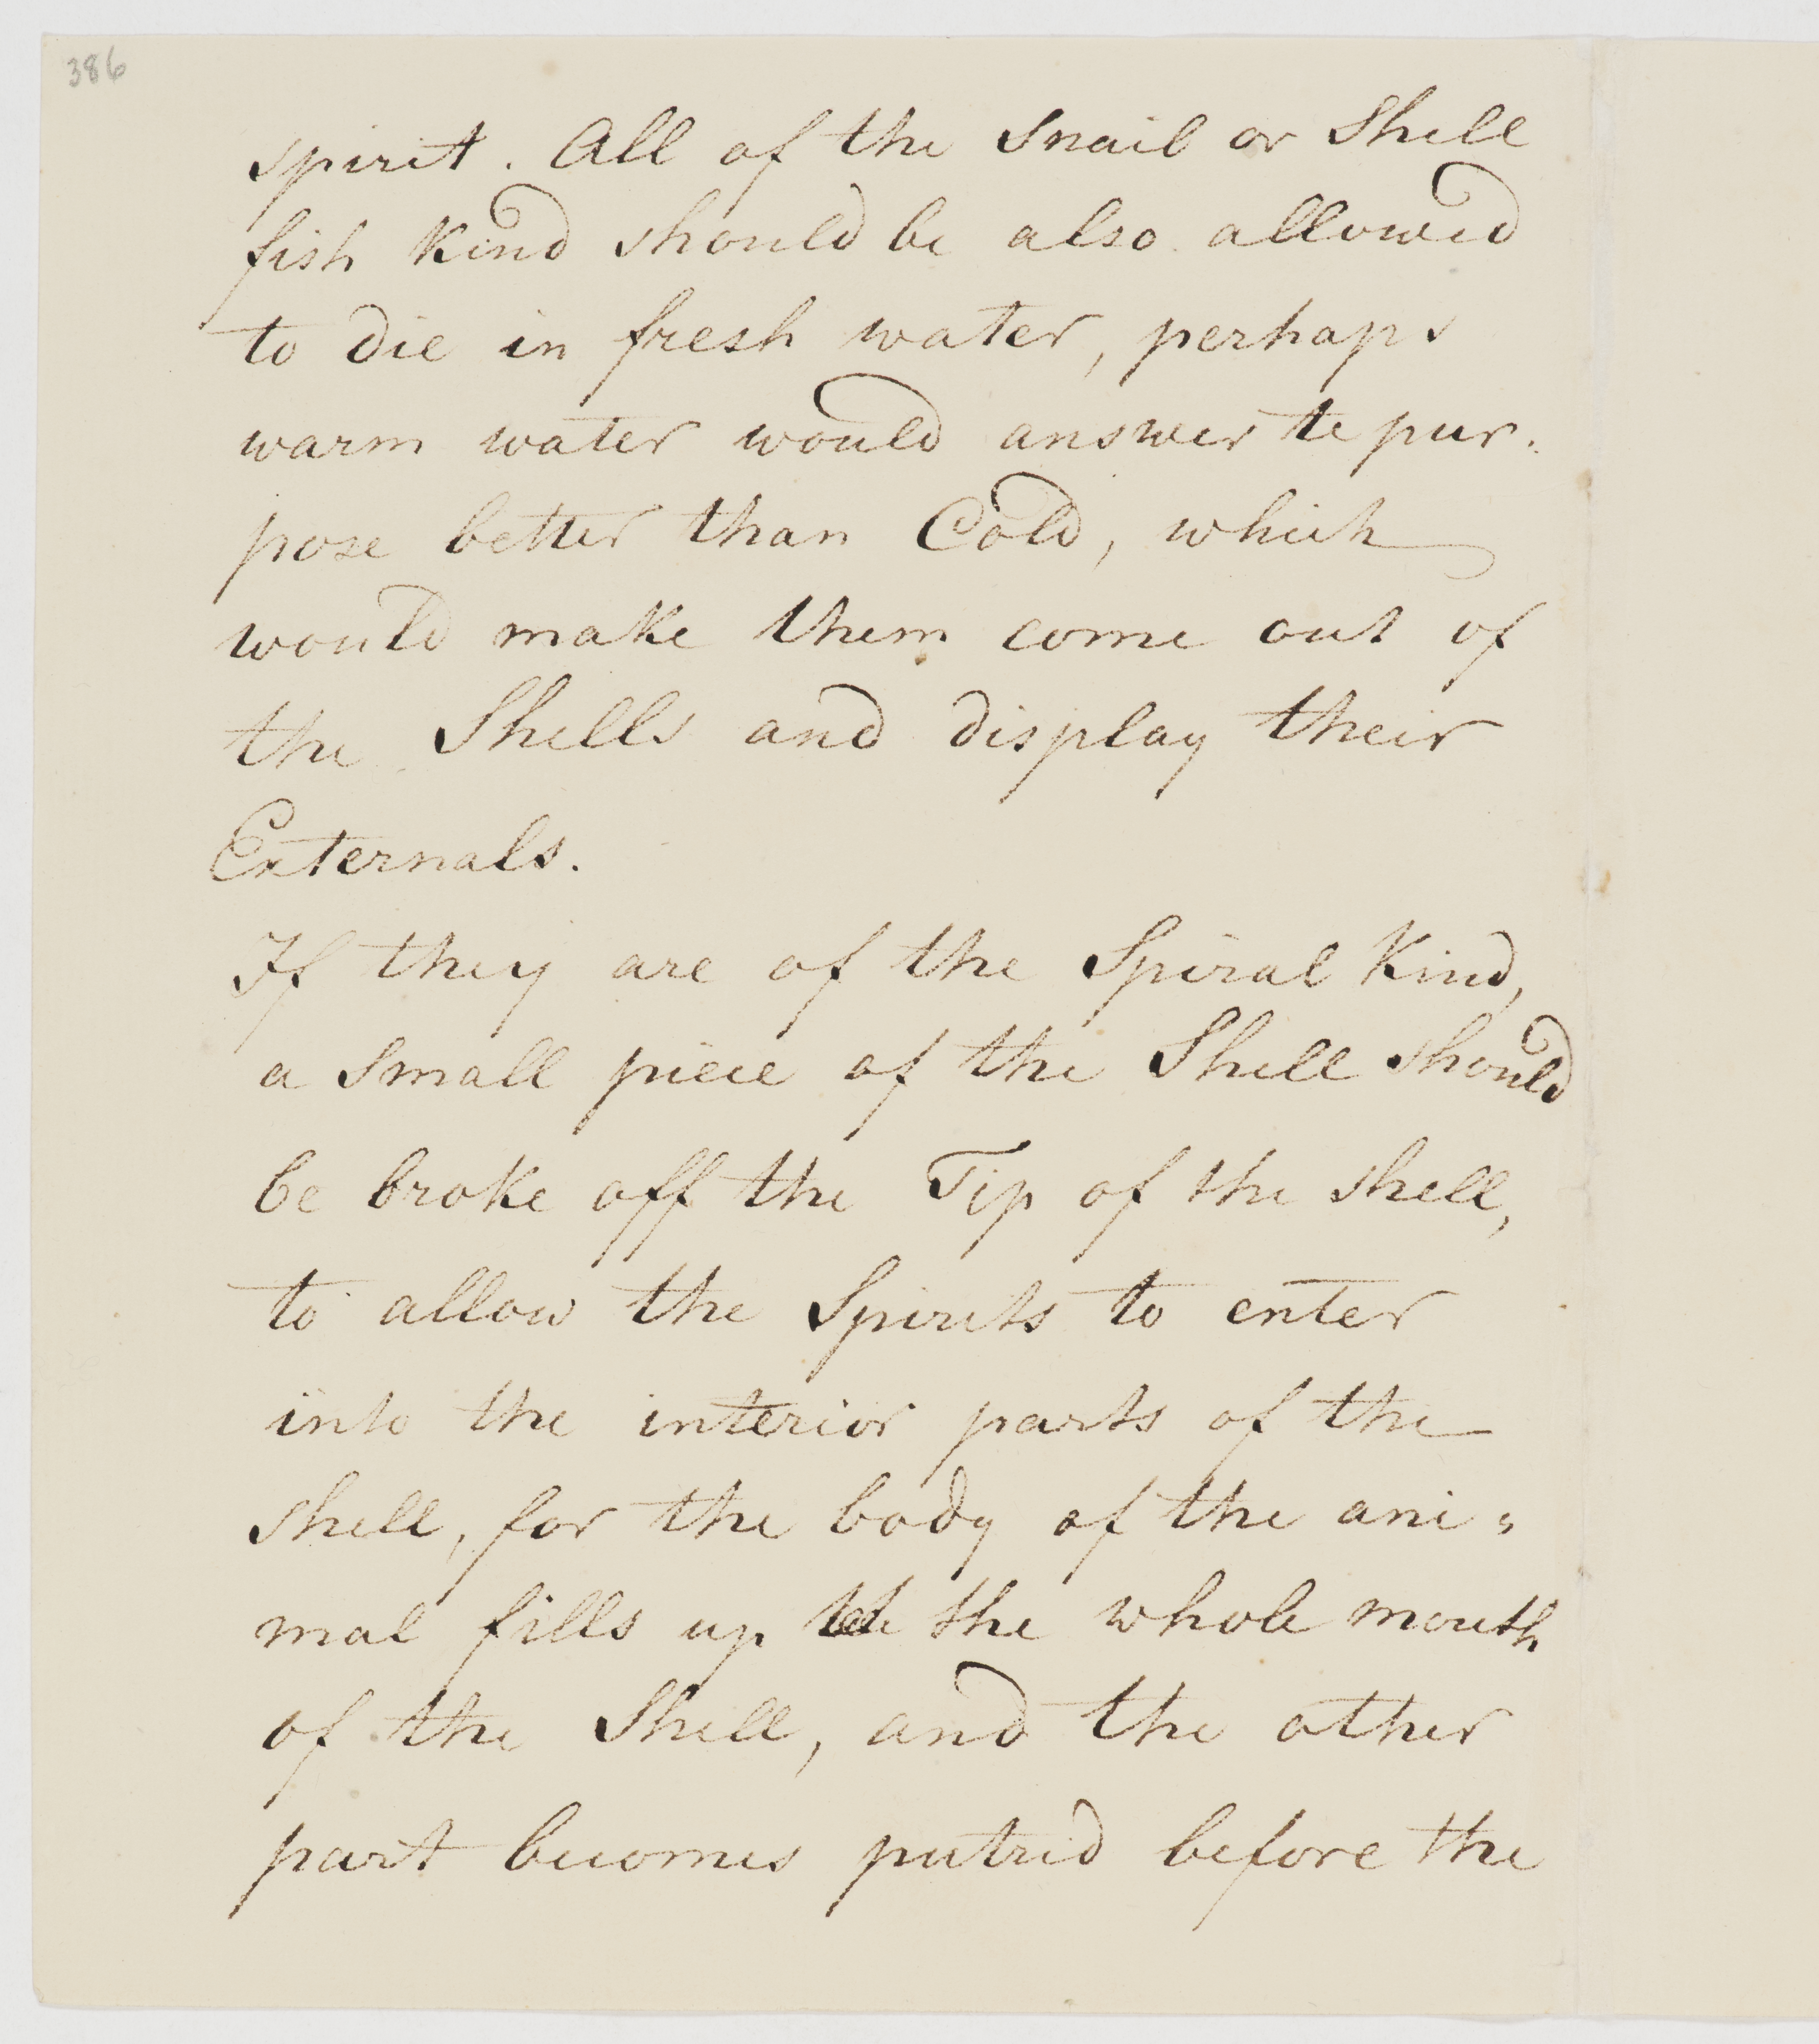 386
spirit. All of the Snail or Shell
fish Kind should be also allowed
to die in fresh water, perhaps
warm water would answer te pur.
pose better than Cold, which
would make them come out of
the Shells and display their
Externals.
If they are of the Spiral Kind,
a Small piece of the Shell should
be broke off the Tip of the shell,
to allow the Spirits to enter
into the interior parts of the
shell, for the body of the ani=
mal fills up the the whole mouth
of the Shell, and the other
part becomes putrid before the